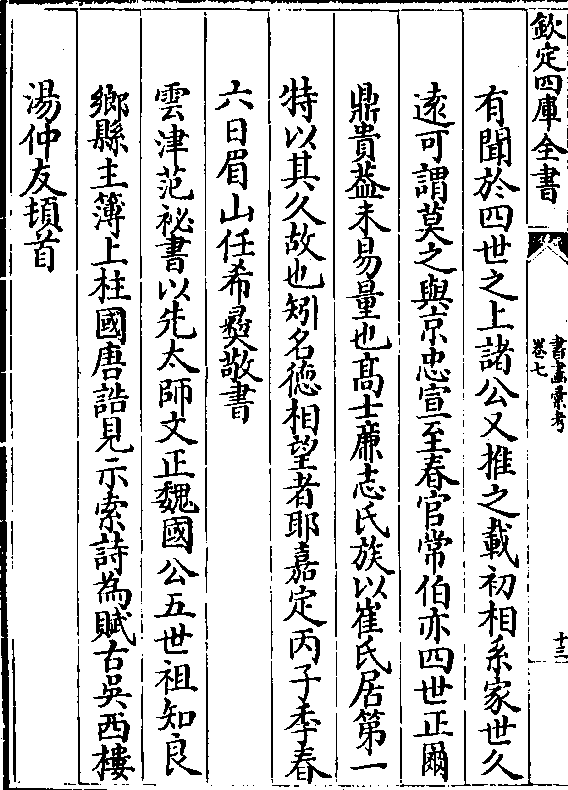 欽定四庫全書
書畫彙考
卷七
十三
有聞於四世之上諸公又推之載初相系家世久
逺可謂莫之與京忠宣至春官常伯亦四世正爾
鼎貴葢未易量也髙士廉志氏族以崔氏居第一
特以其久故也矧名徳相望者耶嘉定丙子季春
六日眉山任希夷敬書
雲津范祕書以先太師文正魏國公五世祖知良
鄉縣主簿上柱國唐誥見示索詩為賦古吳西樓
湯仲友頓首